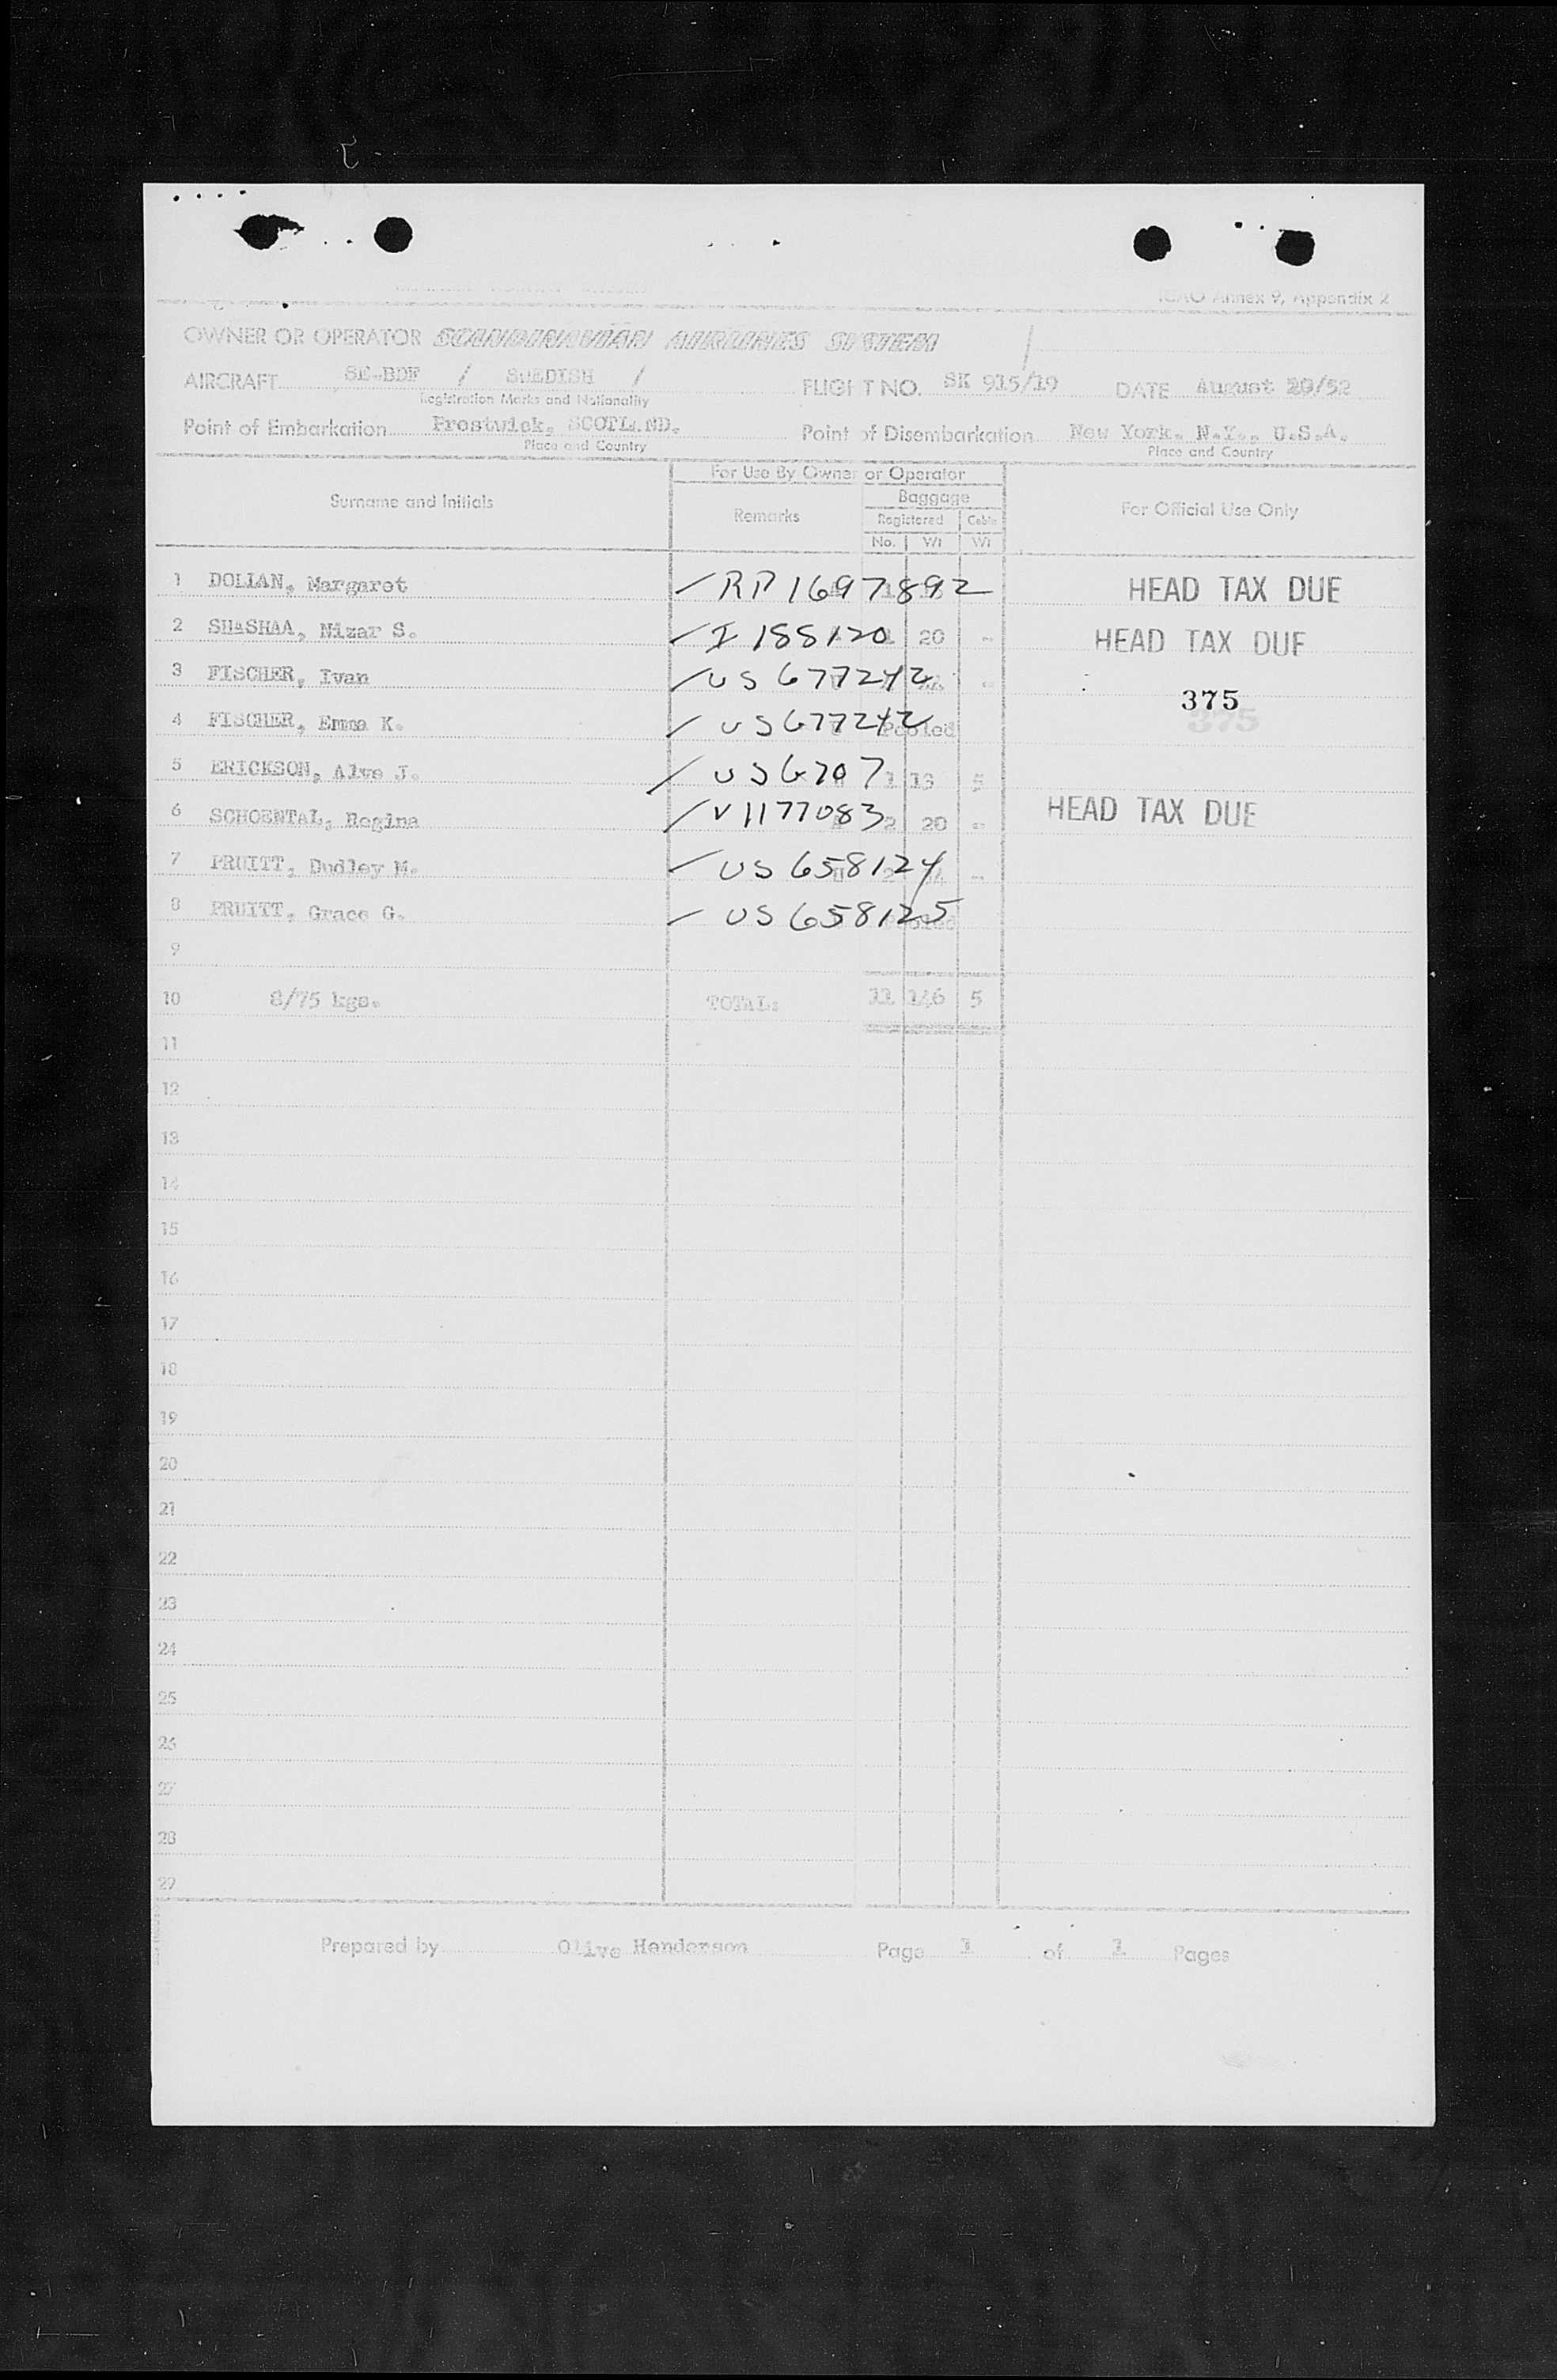 ICAO Annex 9, Appendix 2
OWNER OR OPERATOR SCANDINAVIAN AIRLINES SYSTEM
AIRCRAFT SE-BDF / SWEDISH / FLIGHT NO. SK 915/19 DATE August 20/52
Registration Marks and Nationality
Point of Embarkation Prestwick, SCOTLAND. Point of Disembarkation New York. N.Y., U.S.A.
Place and Country Place and Country
For Use By Owner or Operator
Surname and Initials Remarks Baggage For Official Use Only
Registered Cabin
No. Wt Wt
1 DOLLAN, Margaret RP 1697892 HEAD TAX DUE
2 SHASHAA, Nizar S. I 188120 1 20 - HEAD TAX DUE
3 FISCHER, Ivan US 677242 - 375
4 FISCHER, Emma K. US 677242 Pooled 375
5 ERICKSON, Alve J. US 6707 1 13 5
6 SCHOENTAL, Regina V1177083 2 20 - HEAD TAX DUE
7 PRUITT, Dudley M. US 658124 2 -
8 PRUITT, Grace G. US 658125 Pooled
9
10 8/75 kgs. TOTAL: 11 146 5
11
12
13
14
15
16
17
18
19
20
21
22
23
24
25
26
27
28
29
Prepared by Olive Henderson Page 1 of 1 Pages